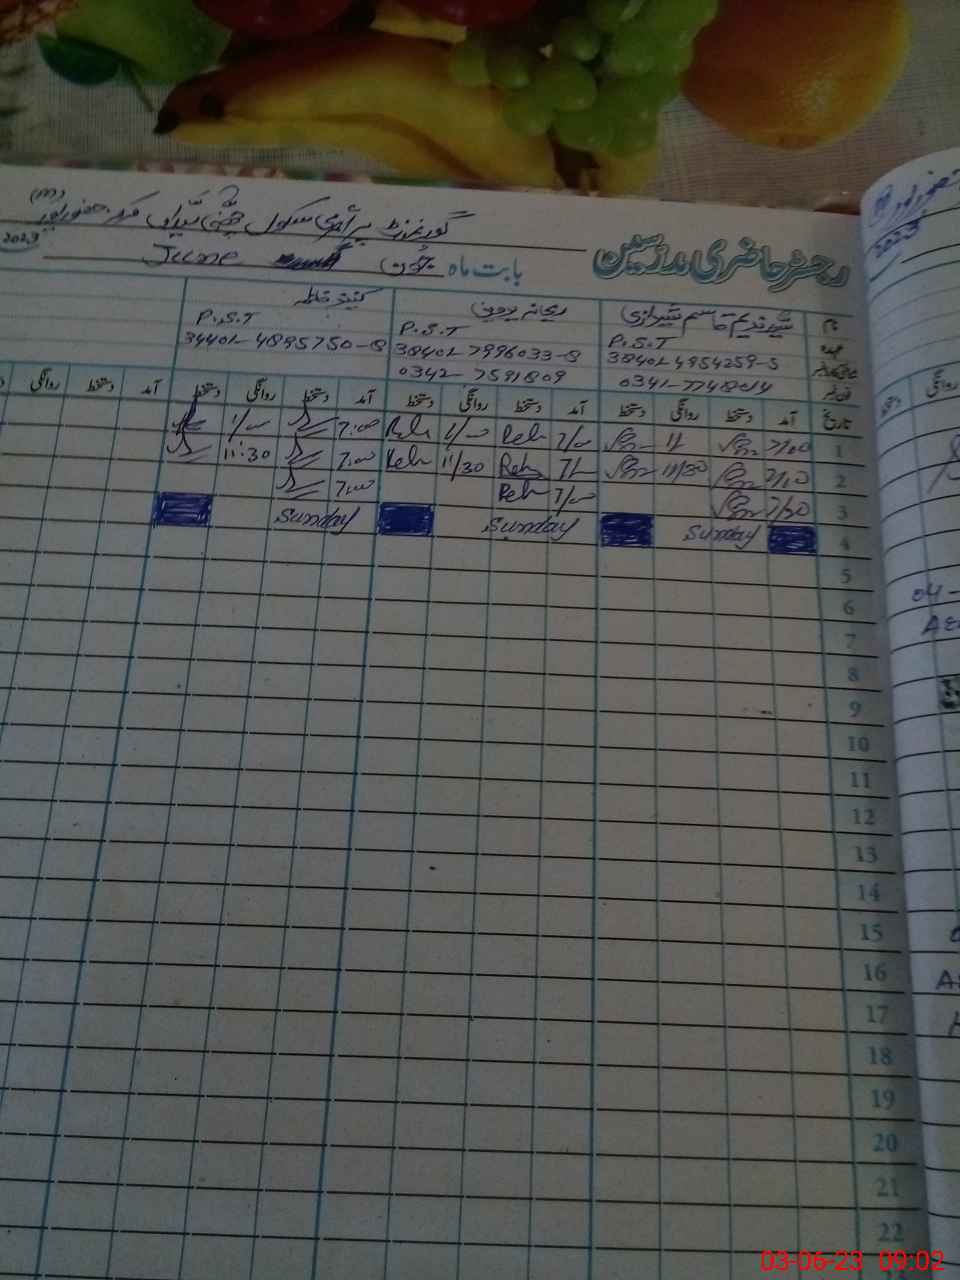 گورنمنٹ پرائمری سکول
(m)
رجسٹر حاضری مدرسین
بابت ماہ جون June
2023
نام سید ندیم قاسم شیرازی ریحانہ پروین کنیز فاطمہ
عہدہ P.S.T P.S.T P.S.T
38401-4954259-5 38401-7996033-8 34401-4895750-8
فون نمبر 0341-7748014 0342-7591809
تاریخ آمد دستخط روانگی دستخط آمد دستخط روانگی دستخط آمد دستخط روانگی دستخط آمد دستخط روانگی
1 7/00 11/ 7/00 Reh 1/00 Reh 7:00 1/00
2 7/00 11/30 7/ Reh 11/30 Reh 7:00 11:30
3 7/00 7/00 Reh 7:00
4 Sunday Sunday Sunday
5
6
7
8
9
10
11
12
13
14
15
16
17
18
19
20
21
22
2023
روانگی
دستخط
04-
03-06-23 09:02